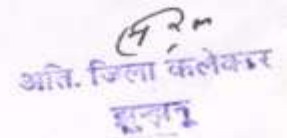 अति. जिला कलेक्टर
झुन्झुनू